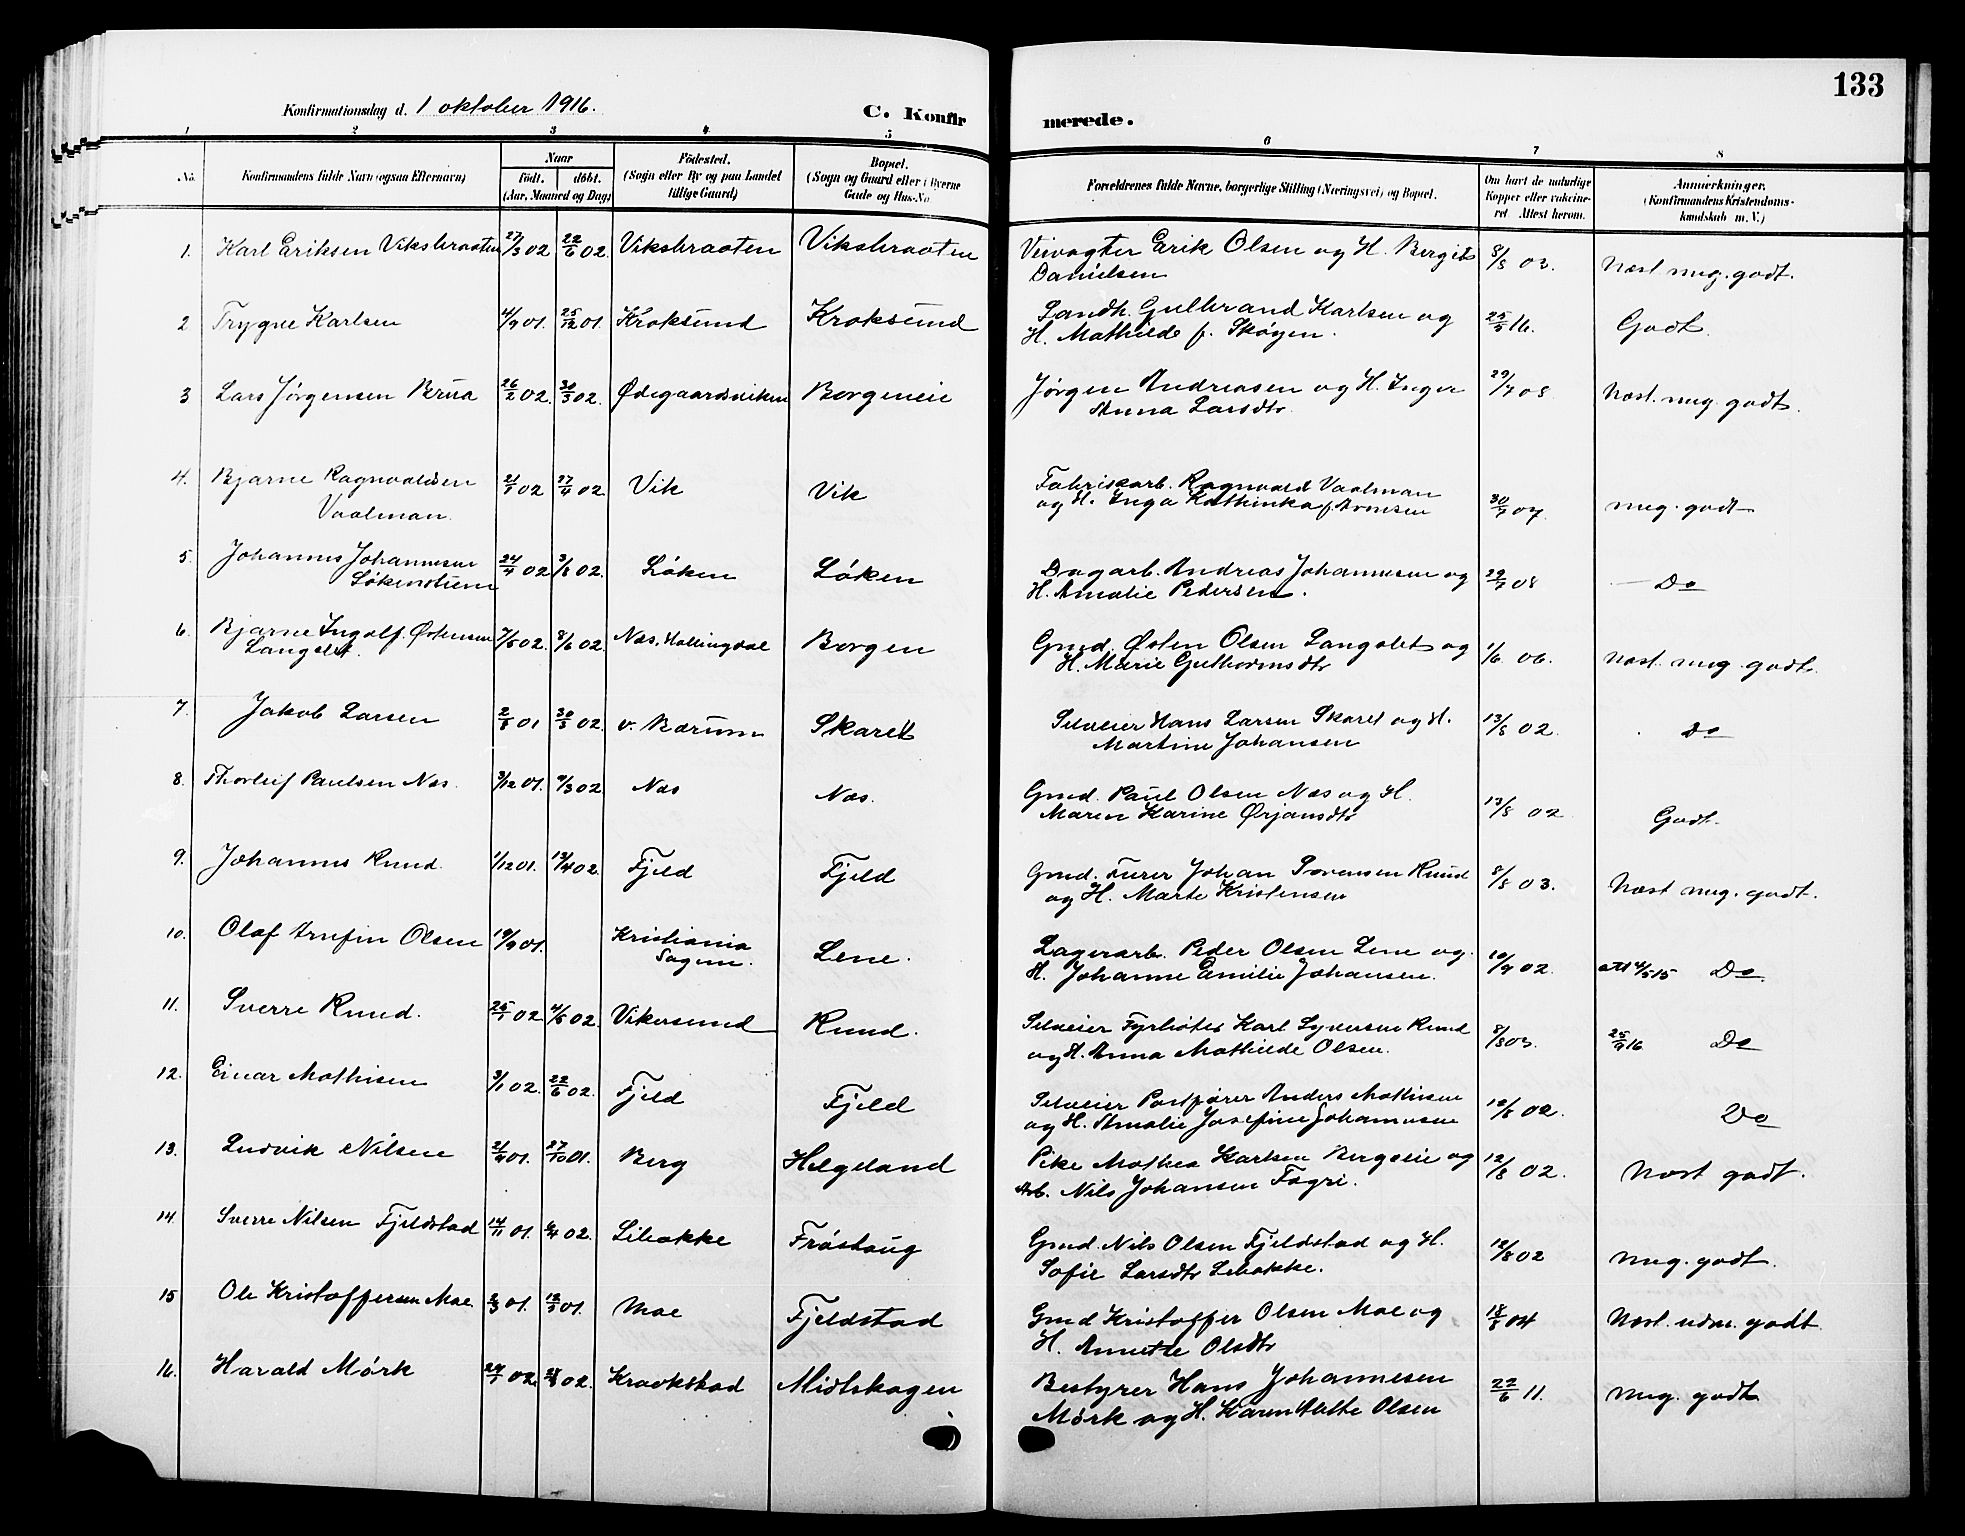 133
Konfirmationsdag d. 1 oktober 1916.
C. Konfirmerede.
1 2 3 4 5 6 7 8
No. Konfirmandens fulde Navn (ogsaa Efternavn) Naar født. døbt. (Aar, Maaned og Dag) Födested. (Sogn eller By og paa Landet tillige Gaard) Bopæl. (Sogn og Gaard eller i Byerne Gade og Hus-No. Forældrenes fulde Navne, borgerlige Stilling (Næringsvei) og Bopæl. Om havt de naturlige Kopper eller vakcineret Attest herom. Anmærkninger. (Konfirmandens Kristendomskundskab m. V.)
1. Karl Eriksen Viksbraaten 27/3 02 22/6 02. Viksbraaten Viksbraaten Veivogter Erik Olsen og H. Bergit 8/8 03. Næst meg. godt.
Danielsen
2 Trygve Karlsen 4/9 01. 25/12 01. Kroksund Kroksund Landh. Gulbrand Karlsen og 25/9 16. Godt.
H. Mathilde f. Skøyen.
3 Lars Jørgensen Brua 26/2 02. 30/3 02. Ødegaardsviken Borgeneie Jørgen Andreasen og H. Inger 29/7 08 Næst. meg. godt.
Anna Larsdtr
4. Bjarne Ragnvaldsen 27/4 02. Vik Vik Fabrikarb. Ragnvald Vaalman 30/7 07. meg. godt
Vaalman. og H. Inga Kathinka f. Arnesen
5. Johannes Johannesen 24/4 02 3/8 02. Løken Løken Dagarb. Andreas Johannesen og 29/7 08 Do
Løkenstuen H. Amalie Pedersen.
6. Bjarne Ingolf Østensen 7/5 02. 8/6 02. Næs, Hallingdal Borgen Gmd. Østen Olsen Langslet og 1/6 06. Næst. meg. godt.
Langslet. H. Marie Guthormsdtr
7. Jakob Larsen 01 30/3 02. v. Bærum Skaret Selveier Hans Larsen Skaret og H. 13/8 02. Do
Martine Johansen
8. Thorleif Paulsen Næs. 3/12 01. 9/3 02 Næs Næs. Gmd. Paul Olsen Næs og H. 13/8 02 Godt.
Maren Karine Ørjansdtr
9. Johannes Rund. 1/12 01. 13/4 02. Fjeld Fjeld Gmd. Furer Johan Sørensen Rund 8/8 03. Næst meg. godt.
og H. Marte Kristensen
10. Olaf Arnfin Olsen 19/9 01. Kristiania Lene. Lagerarb. Peder Olsen Lene og 10/9 02. att 4/5 15 Do.
Sagene. H. Johanne Emilie Johansen.
11. Sverre Rund. 25/1 02 4/5 02. Vikersund Rund. Selveier Fyrbøter Karl Syversen Rund 8/8 03. 25/9 16 Do
og H. Anna Mathilde Olsen.
12. Einar Mathisen 3/1 02. 22/6 02. Fjeld Fjeld Selveier Postfører Anders Mathisen 12/8 02. Do
og H. Amalie Josefine Johannesen
13. Ludvik Nilsen 21/9 01. 27/10 01. Berg Helgeland Pike Mathea Karlsen Bergseie og 12/8 02. Næst godt.
Arb. Nils Johansen Fagri.
14. Sverre Nilsen Fjeldstad 14/11 01. 6/4 02. Libakke Frøshaug Gmd. Nils Olsen Fjeldstad og H. 12/8 02 meg. godt.
Sofie Larsdtr Libakke.
15 Ole Kristoffersen Moe 2/3 01. 12/5 01. Moe Fjeldstad Gmd Kristoffer Olsen Moe og 18/8 04 Næst. udm. godt
H. Annette Olsdtr
16. Harald Mørk 02. 02. Kraakstad Midtskogen Bestyrer Hans Johannesen 22/6 11. meg. godt
Mørk og H. Karen Mathe Olsen